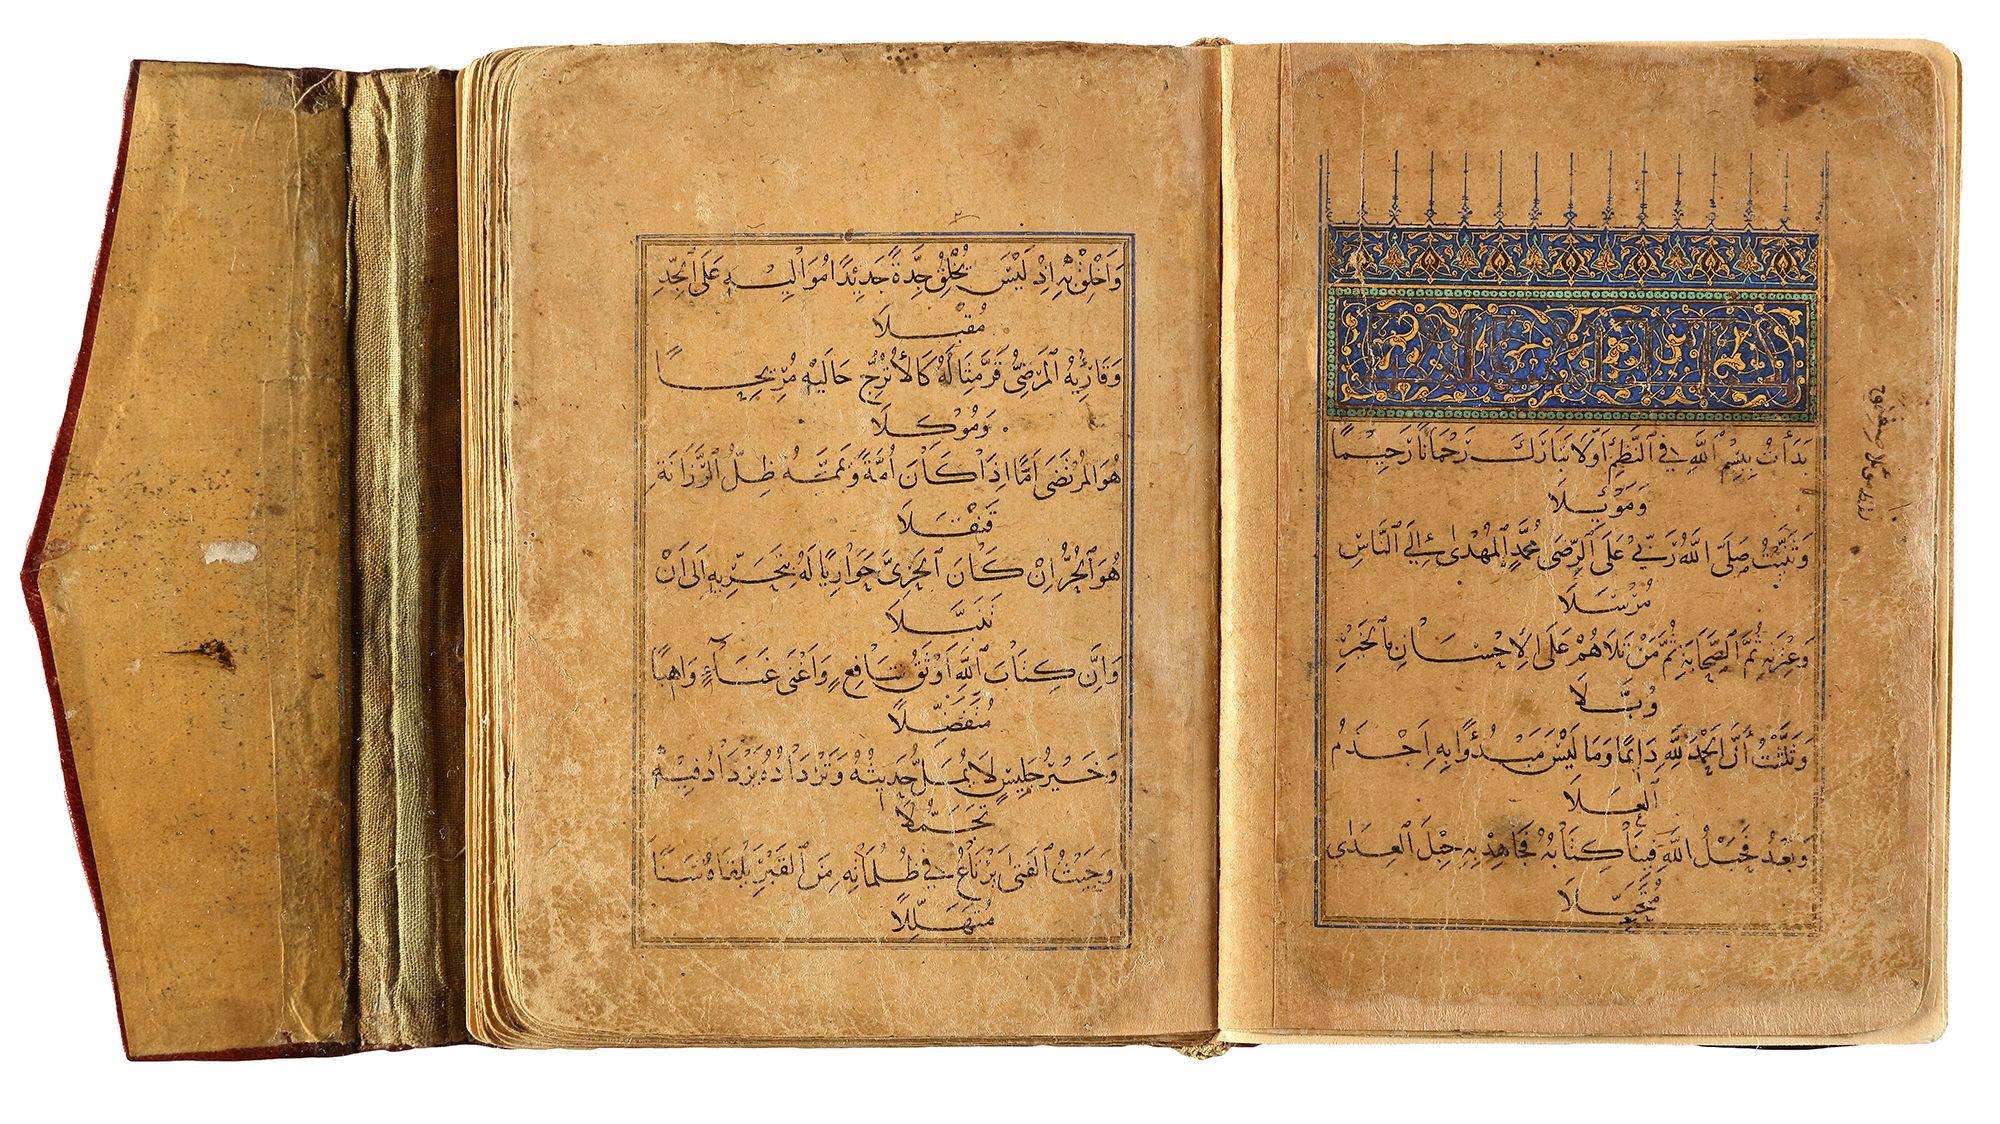 بَدَأْتُ بِبِسْمِ اللَّهِ فِي النَّظْمِ أَوَّلَا تَبَارَكَ رَحْمَانًا رَحِيمًا
وَمَوْئِلَا
وَثَنَّيْتُ صَلَّى اللَّهُ رَبِّي عَلَى الرِّضَى مُحَمَّدٍ الْمُهْدَى إِلَى النَّاسِ
مُرْسَلَا
وَعِتْرَتِهِ ثُمَّ الصَّحَابَةِ ثُمَّ مَنْ تَلَاهُمْ عَلَى الْإِحْسَانِ بِالْخَيْرِ
وُبَّلَا
وَثَلَّثْتُ أَنَّ الْحَمْدَ لِلَّهِ دَائِمًا وَمَا لَيْسَ مَبْدُوءًا بِهِ أَجْذَمُ
الْعَلَا
وَبَعْدُ فَحَبْلُ اللَّهِ فِينَا كِتَابُهُ فَجَاهِدْ بِهِ حِبْلَ الْعِدَى
مُتَحَبِّلَا
وَأَخْلِقْ بِهِ إِذْ لَيْسَ يَخْلُقُ جِدَّةً جَدِيدًا مُوَالِيهِ عَلَى الْجِدِّ
مُقْبِلَا
وَقَارِئُهُ الْمَرْضِيُّ قَرَّ مِثَالُهُ كَالْأُتْرُجِّ حَالَيْهِ مُرِيحًا
وَمُوْكِلَا
هُوَ الْمُرْتَضَى أَمًّا إِذَا كَانَ أُمَّةً وَيَمَّمَهُ ظِلُّ الرَّزَانَةِ
قَنْقَلَا
هُوَ الْحُرُّ إِنْ كَانَ الْحَرِيَّ حَوَارِيًّا لَهُ بِتَحَرِّيهِ إِلَى أَنْ
تَنَبَّلَا
وَإِنَّ كِتَابَ اللَّهِ أَوْثَقُ شَافِعٍ وَأَغْنَى غَنَاءٍ وَاهِبًا
مُتَفَضِّلَا
وَخَيْرُ جَلِيسٍ لَا يُمَلُّ حَدِيثُهُ وَتَرْدَادُهُ يَزْدَادُ فِيهِ
تَجَمُّلَا
وَحَيْثُ الْفَتَى يَرْتَاعُ فِي ظُلُمَاتِهِ مِنَ الْقَبْرِ يَلْقَاهُ سَنًا
مُتَهَلِّلَا